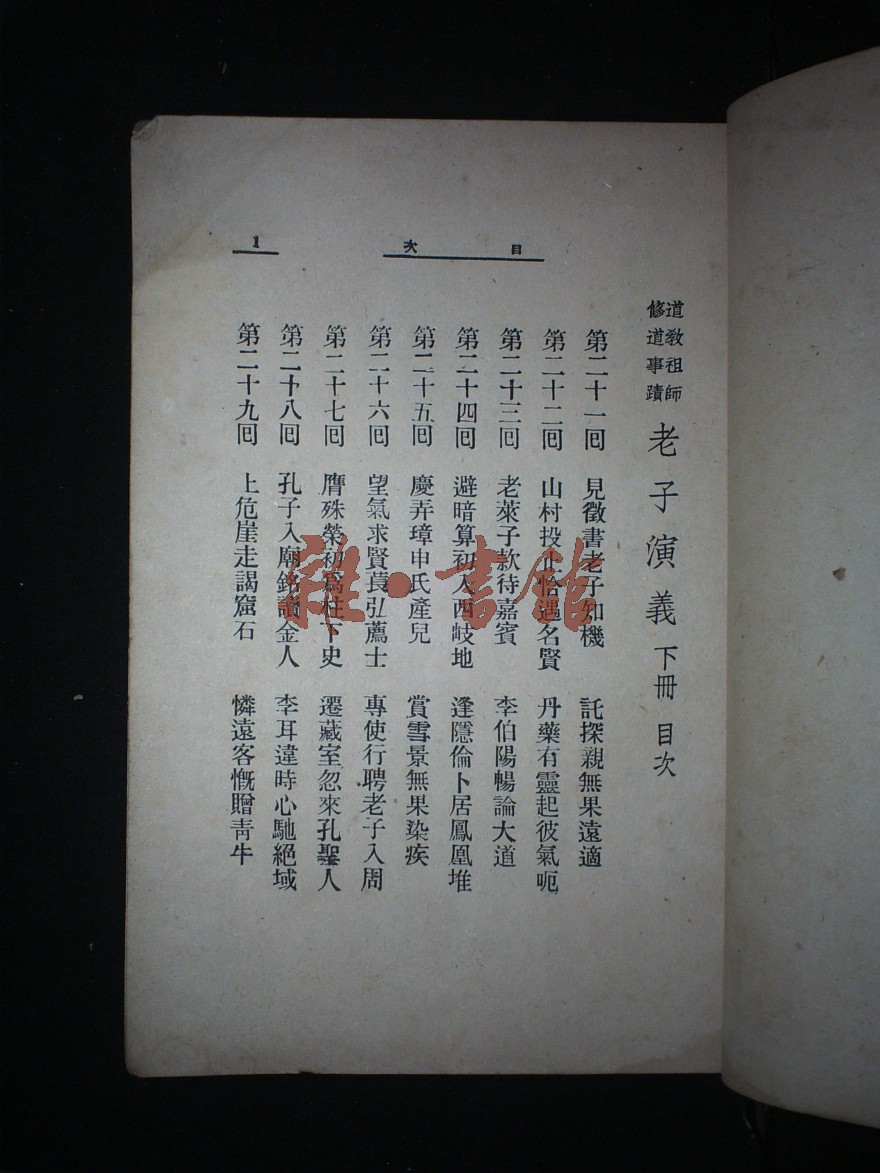 目次
1
道教祖師
修道事蹟
老子演義 下冊 目次
第二十一囘 見徵書老子知機 託探親無果遠適
第二十二囘 山村投止恰遇名賢 丹藥有靈起彼氣呃
第二十三囘 老萊子款待嘉賓 李伯陽暢論大道
第二十四囘 避暗算初入西岐地 逢隱倫卜居鳳凰堆
第二十五囘 慶弄璋申氏產兒 賞雪景無果染疾
第二十六囘 望氣求賢萇弘薦士 專使行聘老子入周
第二十七囘 膺殊榮初爲柱下史 遷藏室忽來孔聖人
第二十八囘 孔子入廟銘讀金人 李耳違時心馳絕域
第二十九囘 上危崖走謁窟石 憐遠客慨贈靑牛
雜·書館